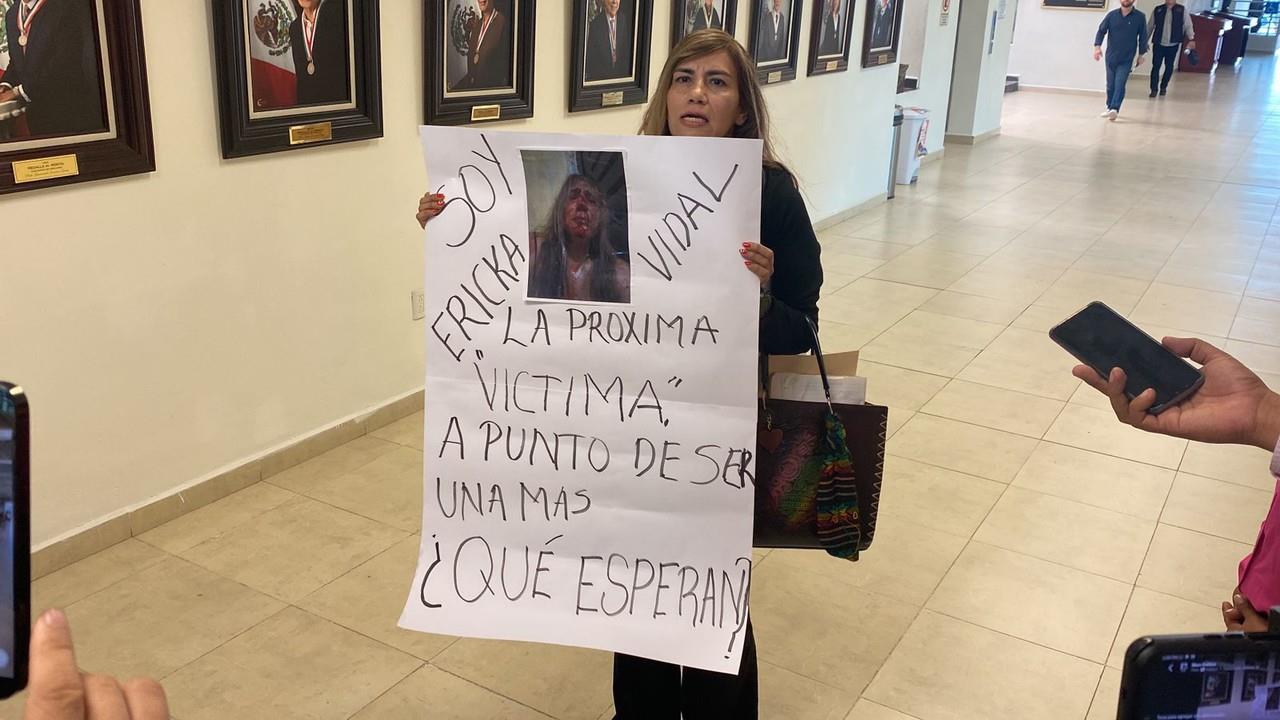 SOY
ERICKA
VIDAL
LA PROXIMA
"VICTIMA",
A PUNTO DE SER
UNA MAS
¿QUÉ ESPERAN?